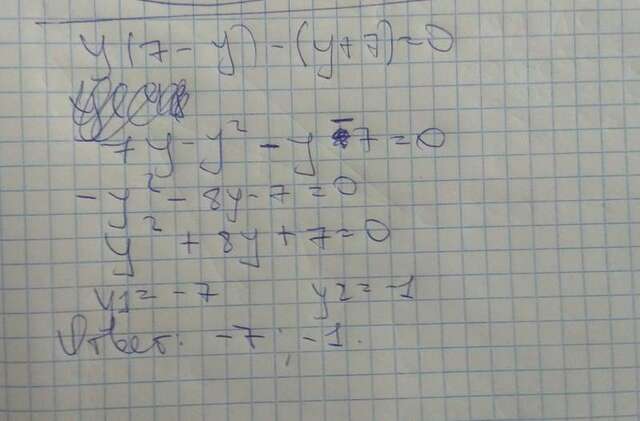 y(7-y)-(y+7)=0
7y-y²-y-7=0
-y²-8y-7=0
y²+8y+7=0
y1=-7 y2=-1
Ответ: -7; -1.